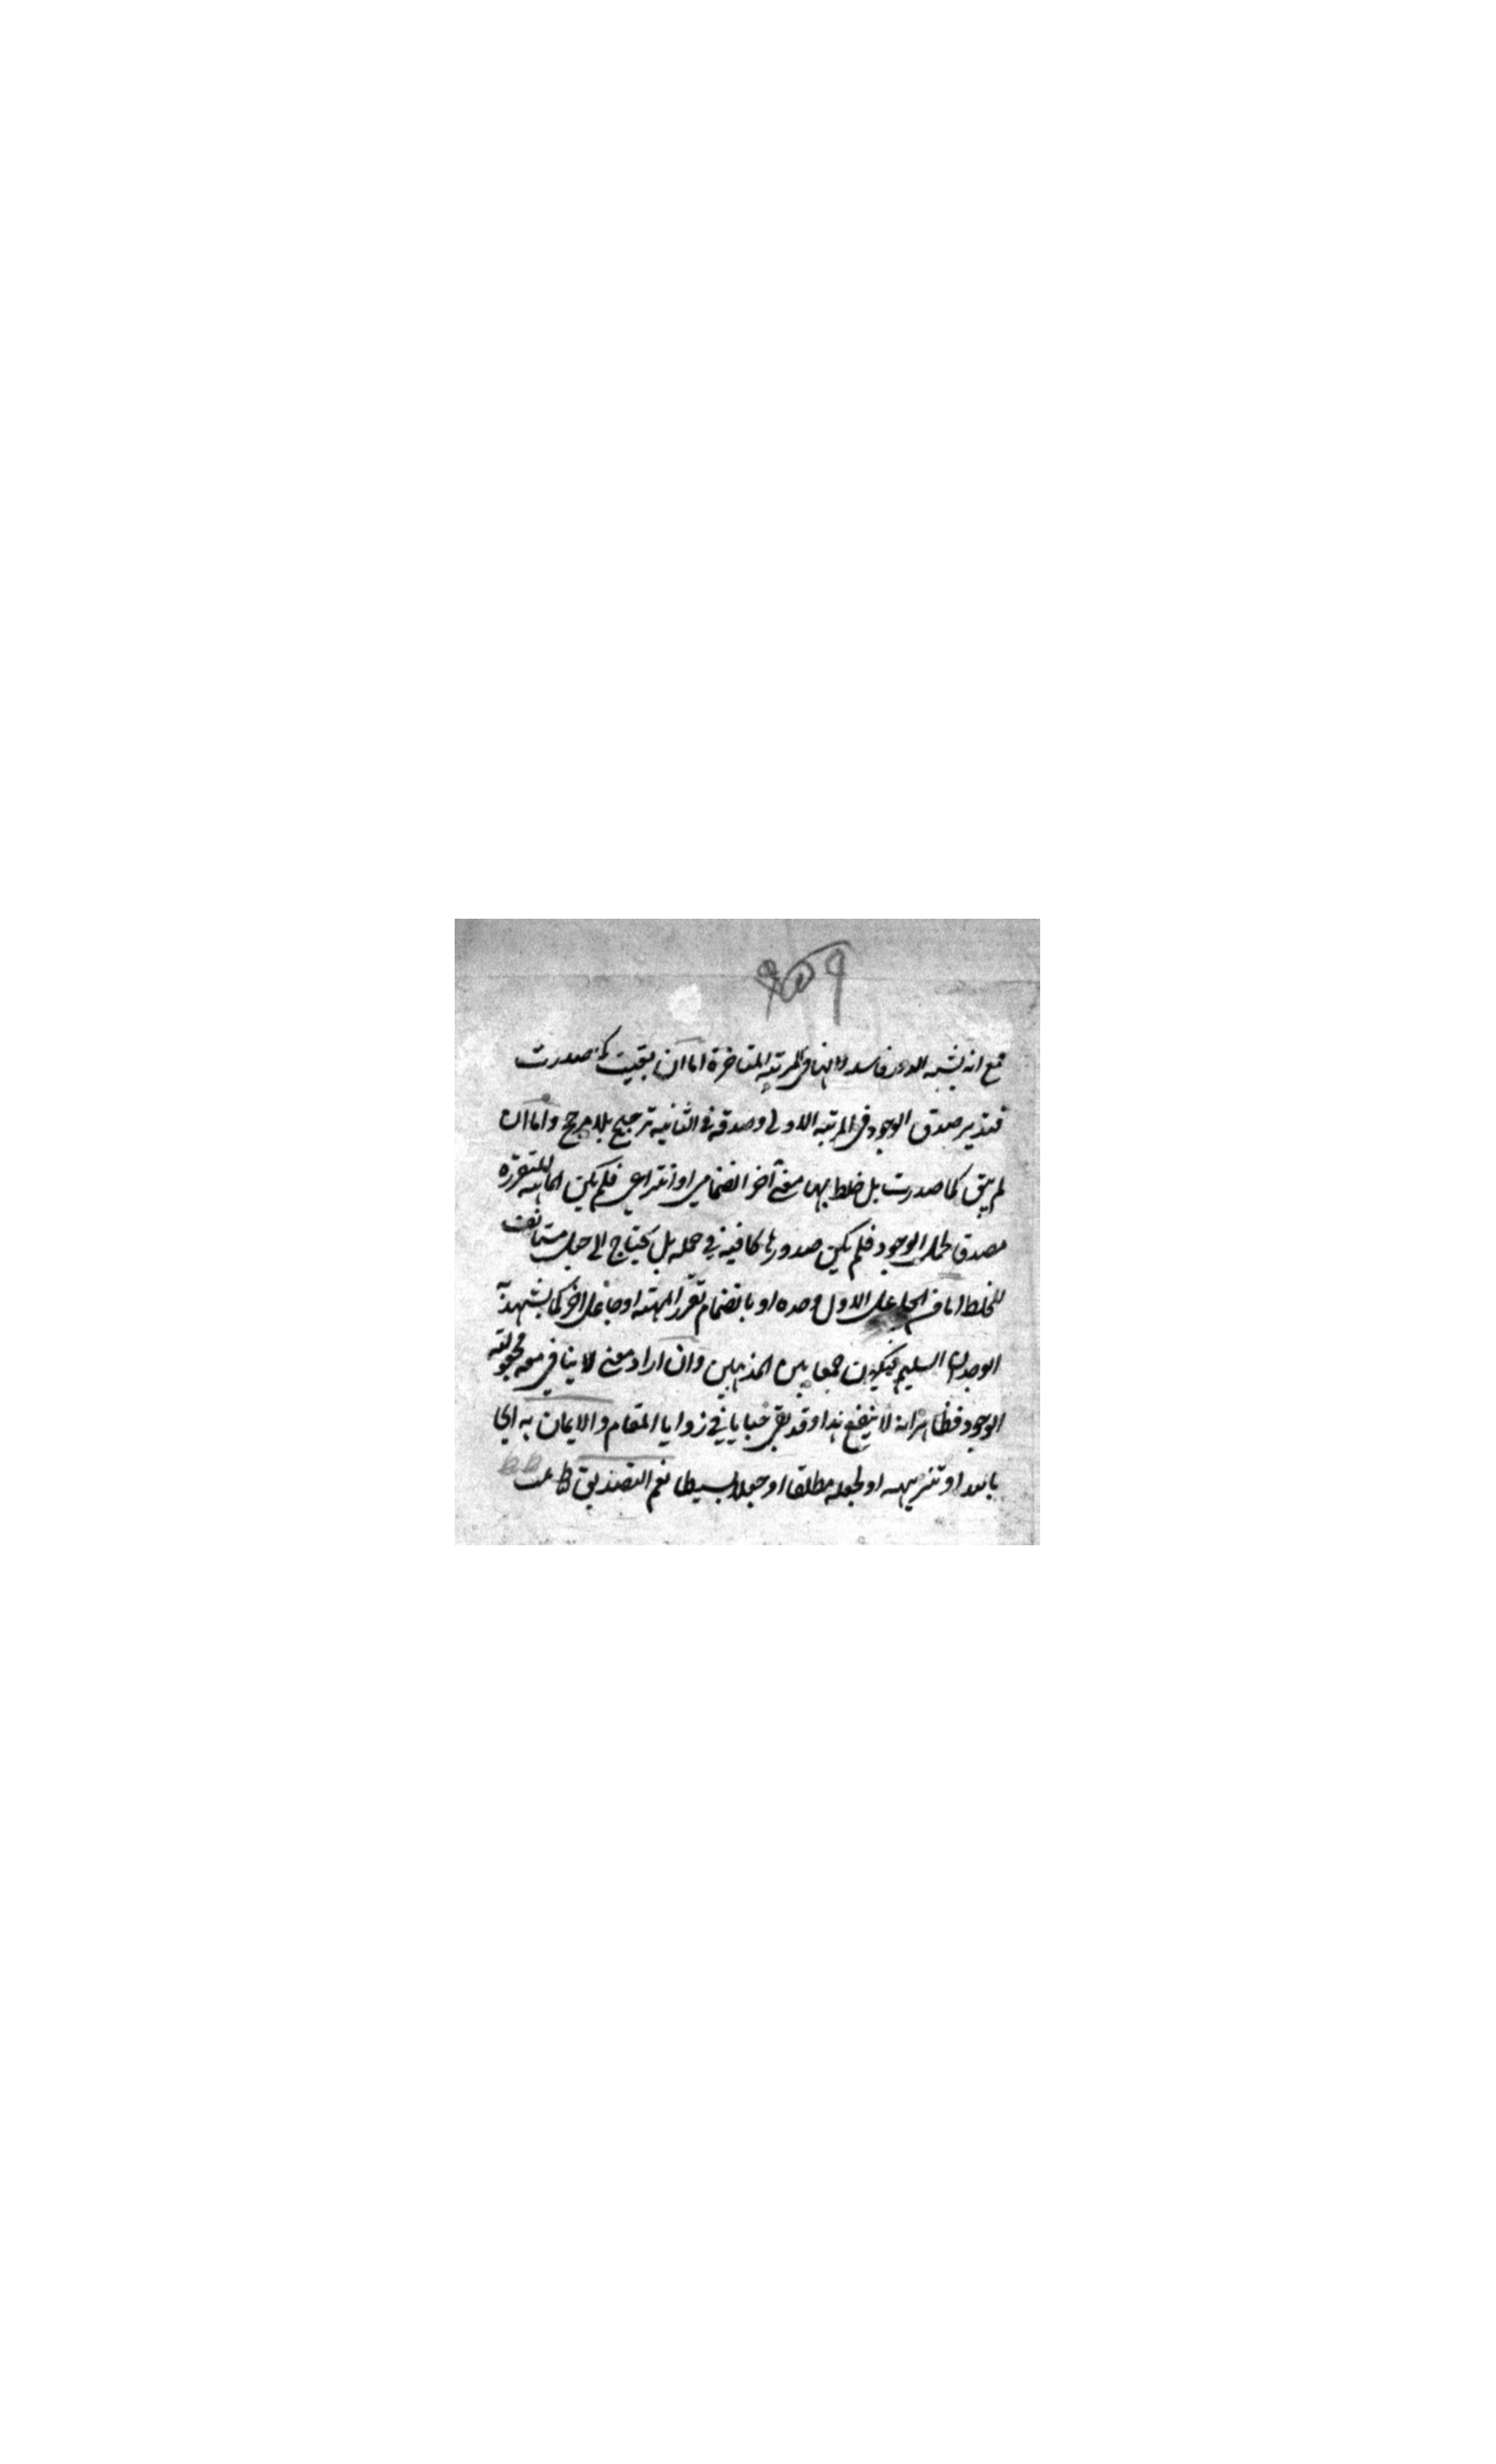 فمع انه يشبه الدور فاسد لانها في المرتبة المتاخرة اما ان بقيت كما صدرت
صدق الوجود في المرتبة الاولى وصدقه في الثانية ترجيح بلا مرجح واما ان
لم يبق كما صدرت بل خلط بها معنى آخر انضمامي او انتزاعي فلم يكن الماهية المتقررة
مصدق لحمل الوجود فلم يكن صدورها كافية في حمله بل يحتاج الى جعل مستانف
للخلط اما من الجاعل الاول وحده او بانضمام تقرر المهية او جاعل اخر كما يشهد به
الوجدان السليم فيكون جمعا بين المذهبين وان اراد معنى لا ينافي معه مجعولية
الوجود فظاهر انه لا ينفع هذا وقد بقي خبايا في زوايا المقام والايمان به اي
بالله او تنزيهه او لجعله مطلقا او جعلا بسيطا نعم التصديق